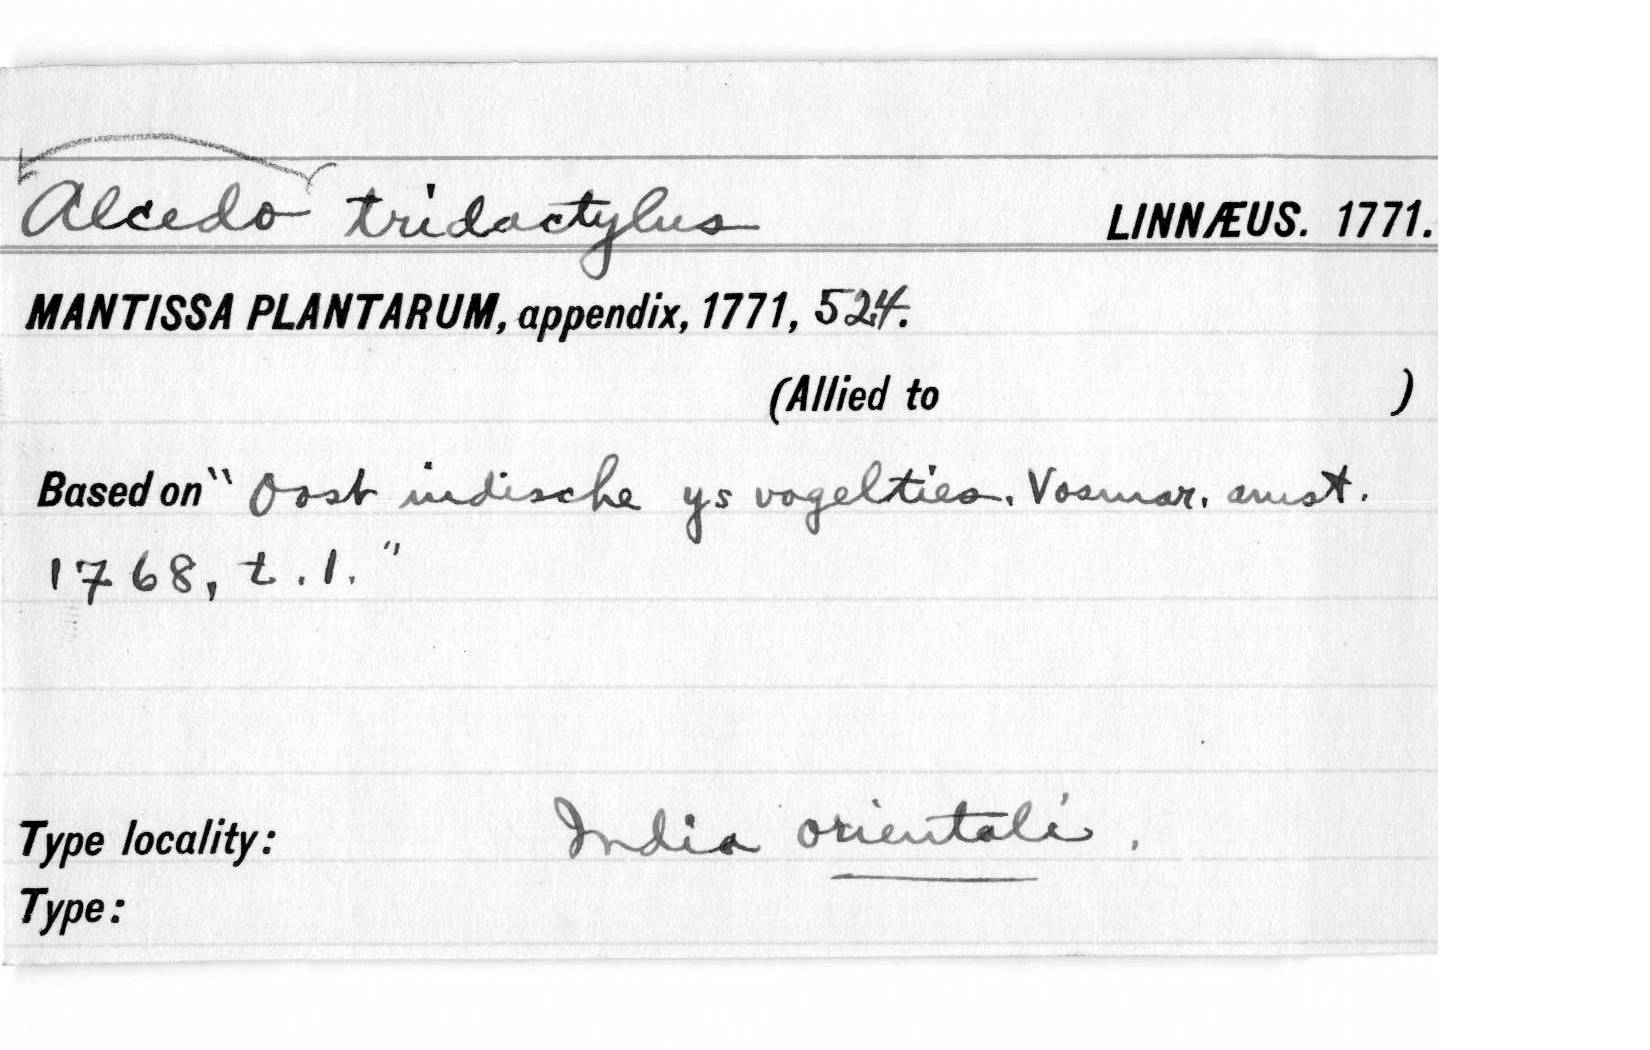 Alcedo tridactylus LINNÆUS. 1771.
MANTISSA PLANTARUM, appendix, 1771, 524.
(Allied to )
Based on "Oost indische ys vogelties. Vosmar. amst.
1768, t. 1."
Type locality: India orientali.
Type: